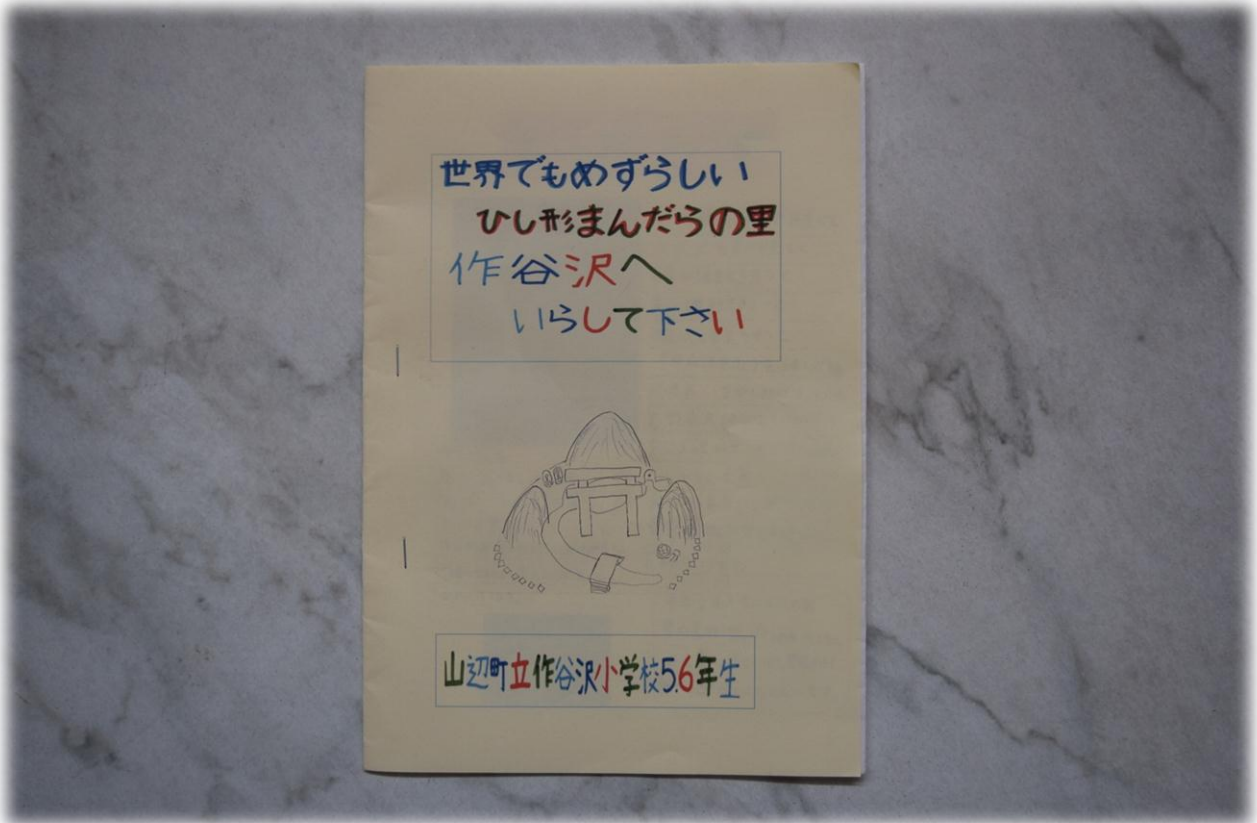 世界でもめずらしい
ひし形まんだらの里
作谷沢へ
いらして下さい
山辺町立作谷沢小学校5.6年生